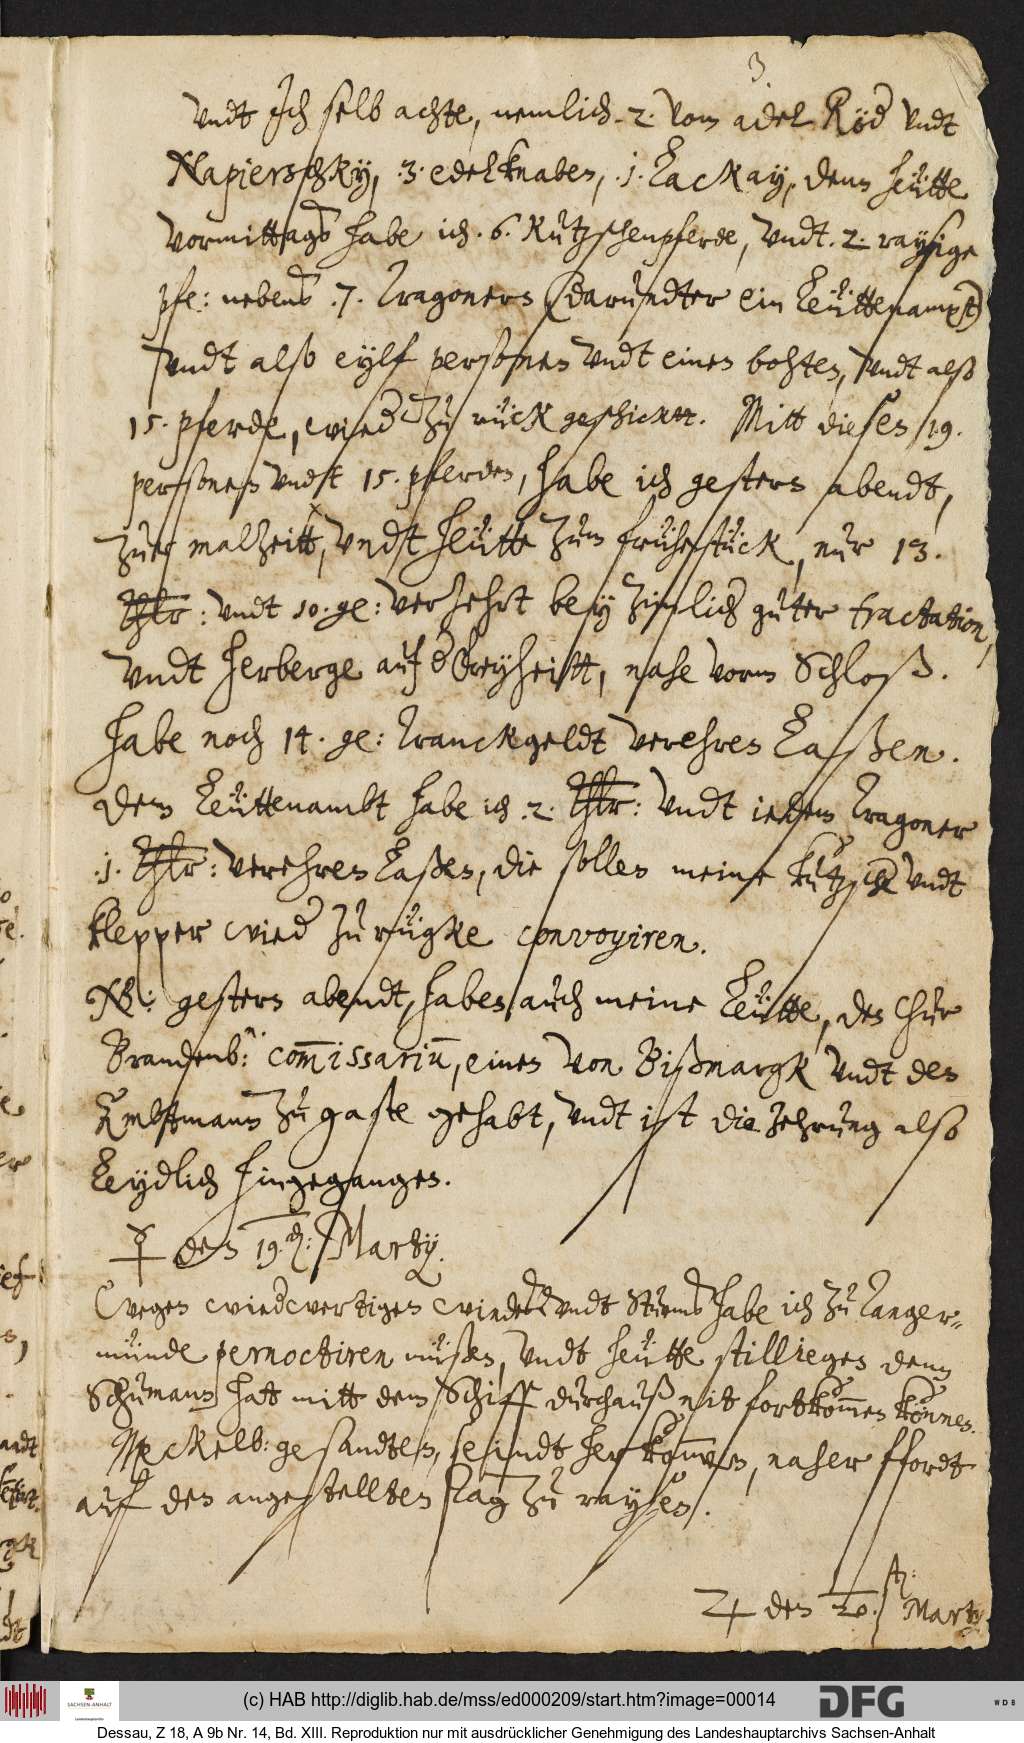 3.
vndt Ich selb achte, nemlich. 2. vom adel Röd vndt
Napierschky, .3. edelknaben, .1. Lackay, denn heütte
vormittags habe ich .6. Kutzschenpferde, vndt .2. raysige
pfe: nebens .7. Tragoners (darundter ein Leüttenampt)
vndt also eylf personen vndt einen bohten, vndt also
15. pferde, wied zu rück geschicktt. Mitt diesen 19.
personen vndt 15. pferden, habe ich gestern abendt,
zur malzeitt, vndt heütte zum frühestück, nur 13.
Thlr: vndt 10. ge: verzehrt bey zimlich guter tractation,
vndt herberge auf d Freyheitt, nahe vorm Schloß.
habe noch 14. ge: Tranckgeldt verehren Laßen.
Dem Leüttenambt habe ich .2. Thlr: vndt iedem Tragoner
.1. Thlr: verehren Laßen, die sollen meine kutzsche vndt
klepper wied zu rügke convoyiren.
NB: gestern abendt, haben auch meine Leütte, den Chur
Brandenb: com̄issariū, einen von Bißmargk vndt den
Ambtmann zu gaste gehabt, vndt ist die zehrung also
Leydlich hingegangen.
☿ den 19. Marty.
Wegen wiedwertigen windes vndt Sturms habe ich zu Tanger-
münde pernoctiren müßen, vndt heütte stillliegen denn
Schumann hat mitt dem Schiff durchauß nit fortkom̄en können.
Meckelb: gesandten, seindt her kom̄en, naher ffordt
auf den angestellten Tag zu raysen.
♃ den 20. Marty
(c) HAB http://diglib.hab.de/mss/ed000209/start.htm?image=00014
SACHSEN-ANHALT
DFG
WDB
Dessau, Z 18, A 9b Nr. 14, Bd. XIII. Reproduktion nur mit ausdrücklicher Genehmigung des Landeshauptarchivs Sachsen-Anhalt